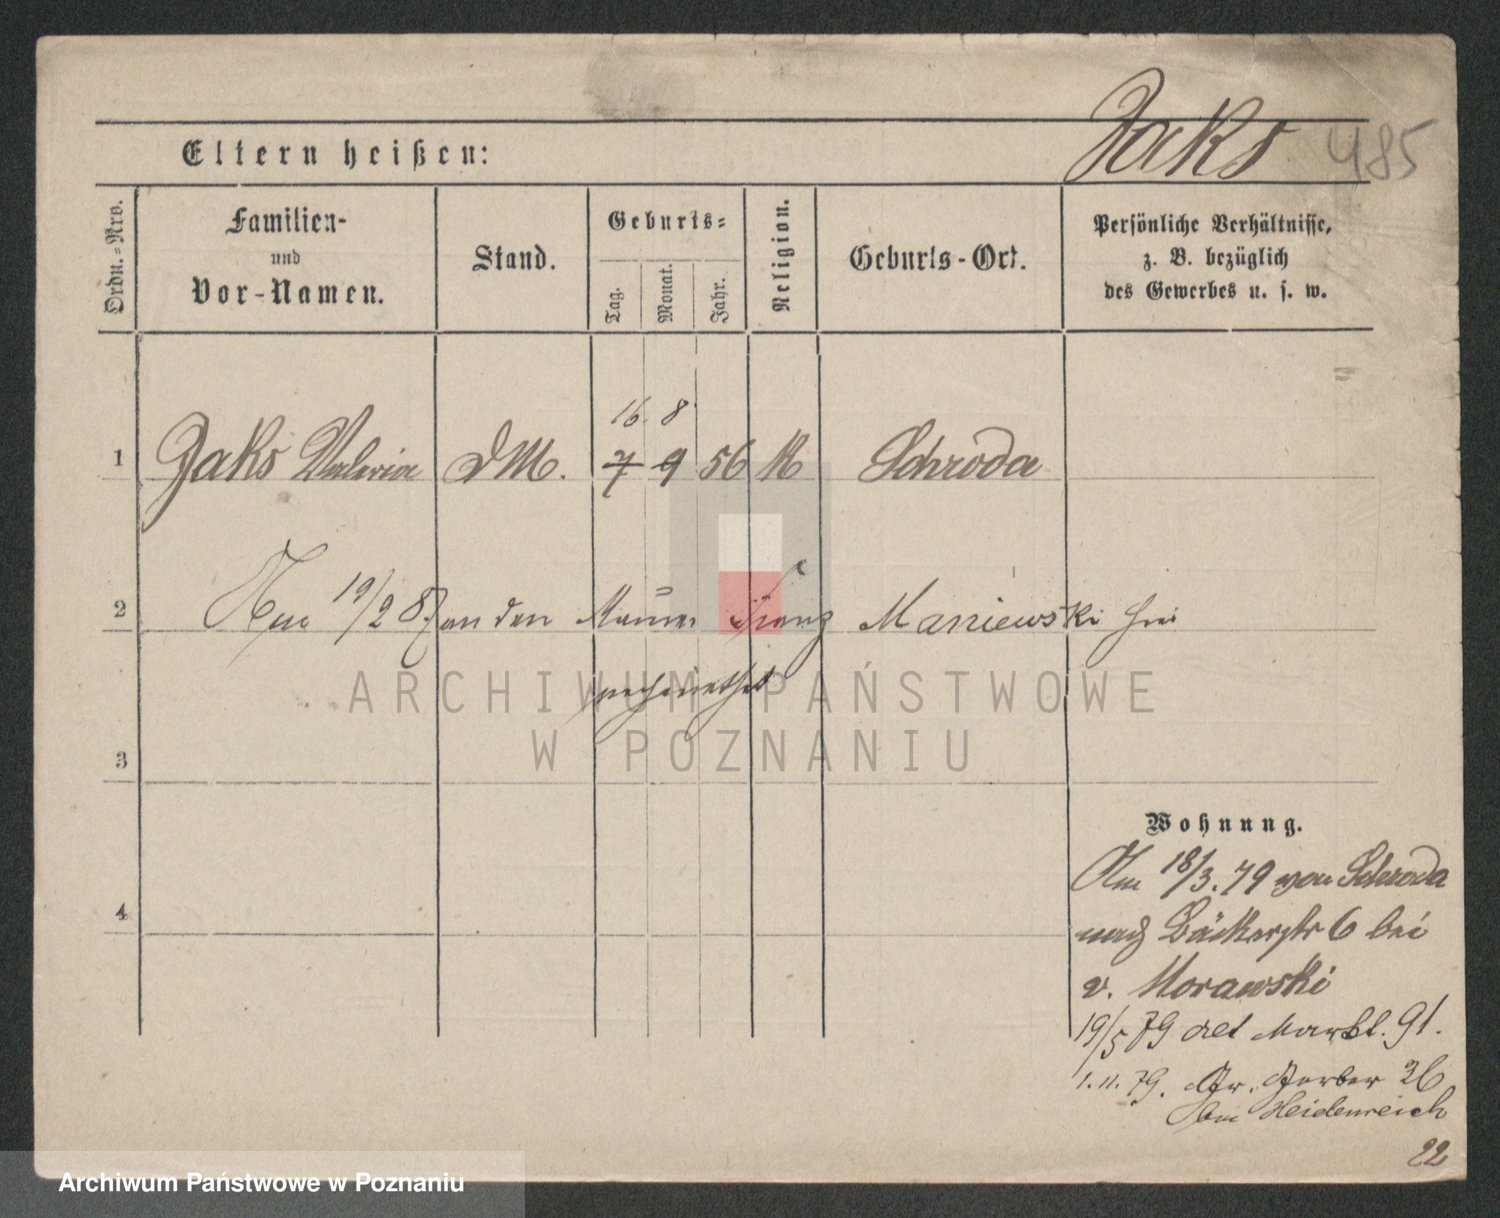 Jaks 485
Eltern heißen:
Ordn.-Nro.
Familien-
und
Vor-Namen.
Stand.
Geburts-
Tag.
Monat.
Jahr.
Religion.
Geburts-Ort.
Persönliche Verhältnisse,
z. B. bezüglich
des Gewerbes u. s. w.
16. 8
1 Jaks Valeria DM. 7 9 56 K Schroda
2 Am 19/2 87 an den Maurer Franz Maniewski hier
verheirathet
ARCHIWUM PAŃSTWOWE
W POZNANIU
3
4
Wohnung.
Am 18/3.79 von Schroda
nach Bäckerstr 6 bei
v. Morawski
19/5 79 alt Markt. 91.
1.11.79. Gr. Gerber 36
bei Heidenreich
22
Archiwum Państwowe w Poznaniu